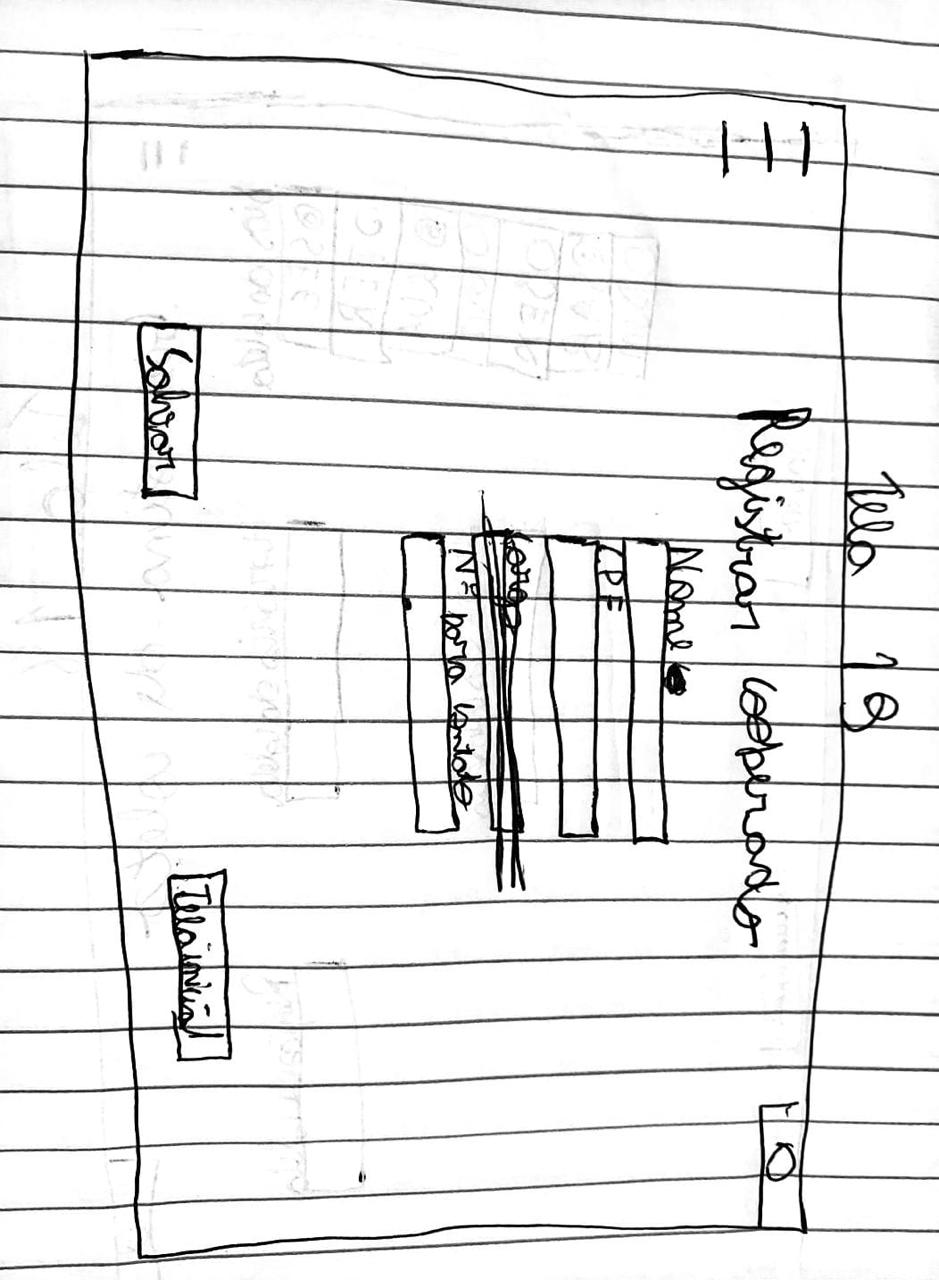 Tela 19
Registrar cooperado
Nome
CPF
Cargo
Nº para contato
Salvar
Tela inicial